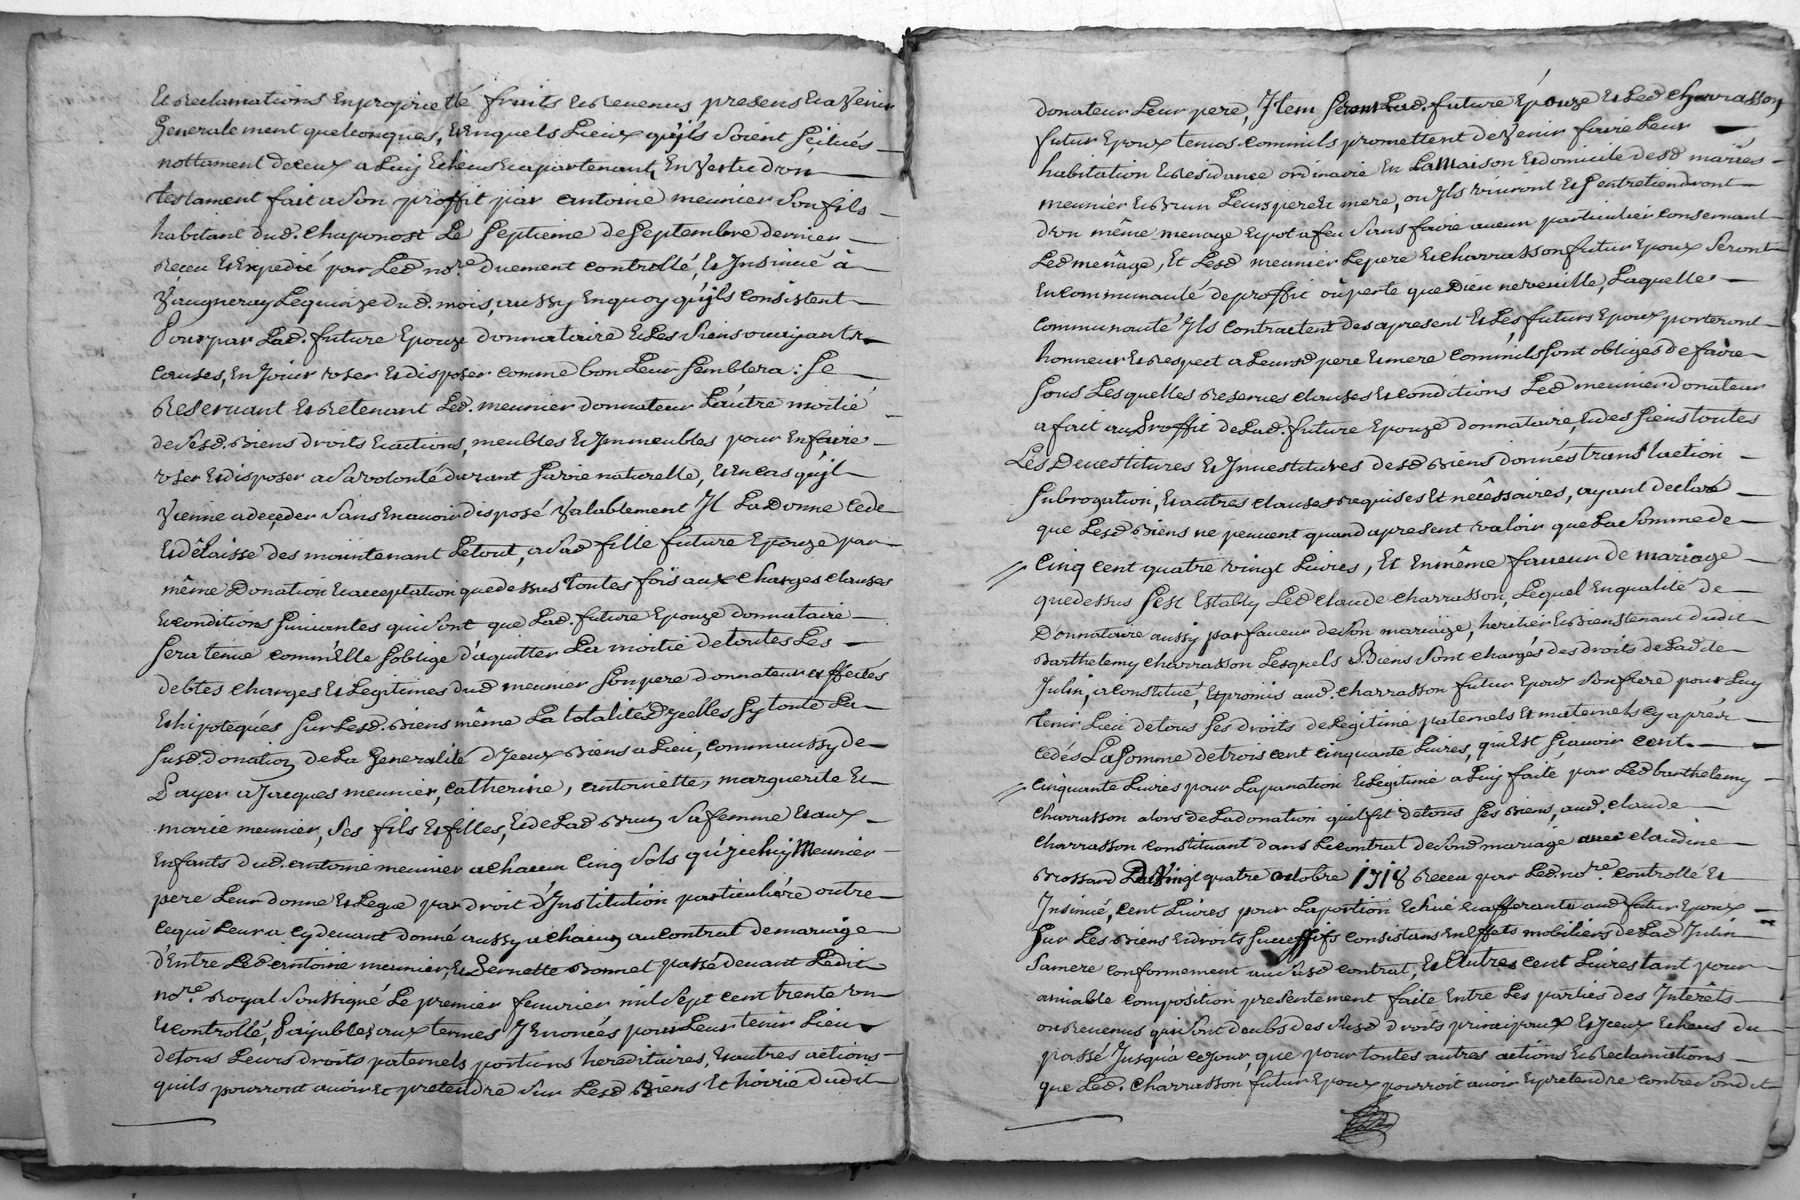 et Reclamations en proprietté fruits et Revenus presens et a venir
Generalement quelconques, et en quels Lieux qu'jls soient scitués
nottament de ceux a Luy Echeus et apartenants En Vertu d'vn
testament fait a son proffit par antoine meunier son fils
habitant dud. chaponost Le septieme de septembre dernier
Receu et Expedié par Led no.re duement controllé, et Jnsinué à
Vaugneray Le quinze dud. mois, aussy En quoy qu'jls consistent
Pour par Lad. future Epouze donnataire et Les siens ou ayants
causes, En Jouir vser et disposer comme bon Leur semblera : se
Reservant et Retenant Led. meunier donnateur L'autre moitié
de sesd. Biens droits et actions, meubles et Jmmeubles pour En faire
vser et disposer a sa volonté durant sa vie naturelle, et en cas qu'jl
Vienne a deçeder sans en avoir disposé valablement Jl La Donne Cede
et dêlaisse des maintenant Le tout, a sad fille future Epouze par
même Donation et acceptation que dessus toutes fois aux charges clauses
et conditions suivantes qui sont que Lad. future Epouze donnataire
sera tenue comm'Elle s'oblige d'aquitter La moitié de toutes Les
debtes charges et Legitimes dud meunier son pere donnateur affectés
et hipotequés sur Lesd. Biens même La totalité d'jcelles sy toute La
susd. donation de La Generalité d'Jceux Biens a Lieu, comm'aussy de
Payer a Jacques meunier, catherine, antoinette, marguerite et
marie meunier, ses fils et filles, et de Lad Brun sa femme et aux
Enfants dud. antoine meunier a chacun Cinq sols qu'jceluy Meunier
pere Leur donne et Legue par droit d'Institution particulière outre
ce qui Leur a cy devant donné aussy a chacun au contrat de mariage
d'Entre Led antoine meunier, et Bernette Bonnet passé devant Ledit
no.re Royal soussigné Le premier fevvrier mil sept cent trente vn
et controllé, Payables aux termes Jl Enoncés pour Leur tenir Lieu
de tous Leurs droits paternels portions hereditaires, et autres actions
quils pourront avoir et pretendre sur Lesd Biens et hoirie dudit
donateur Leur pere, Jtem seront Lad. future Epouze et Led charrasson
futur Epoux tenus comm'ils promettent de venir faire Leur
habitation et Residance ordinaire En La Maison et domicile desd mariés
meunier et Brun Leurs pere et mere, ou Jls vivront et s'entretiendront
d'vn même menage et pot a feu sans faire aucun particulier conservant
Led menâge, Et Lesd meunier Le pere et charrasson futur Epoux seront
en communauté de proffit ou perte que Dieu ne veuille, Laquelle
communauté Jls contractent des apresent et Les futurs Epoux porteront
honneur et Respect a Leursd pere et mere comm'ils sont obligés de faire
sous Lesquelles Reserves clauses et conditions Led meunier donateur
a fait au Proffit de Lad. future Epouze donnataire, et des siens toutes
Les Devestitures et Jnvestitures desd Biens donnés translaction
subrogation, et autres clauses requises et nécéssaires, ayant declaré
que Lesd Biens ne peuvent quand apresent valoir que La somme de
Cinq cent quatre vingt Livres, Et En même faveur de mariage
que dessus s'est Estably Led claude charrasson, Lequel En qualité de
Donnataire aussy par faveur de son mariage, heritier et Bienstenant dudit
Barthelemy charrasson Lesquels Biens sont chargés des droits de Lad de
Julin, a constitué, Et promis aud. charrasson futur Epoux son frere pour Luy
tenir Lieu de tous ses droits de Legitime paternels et maternels cy aprés
cedés La somme de trois cent cinquante Livres, qui Est sçavoir cent
Cinquante Livres pour L'apanation et Legitime a Luy faite par Led barthelemy
charrasson alors de La donation qu'il fit de tous ses Biens, aud. claude
charrasson constituant dans Le contrat de sond mariage avec claudine
Brossard Du Vingt quatre octobre 1718 Receu par Led no.re controllé et
Insinué, cent Livres pour La portion Echue et afferante aud futur Epoux
sur Les Biens et droits successifs consistans en Effets mobiliers de Lad Julin
sa mere conformement au susd contrat, et Autres cent Livres tant pour
amiable composition presentement faite Entre Les parties des Interêts
ou Revenus qui sont deubs des susd droits principaux et Jceux Echeus du
passé Jusqu'a ce jour, que pour toutes autres actions et Reclamations
que Led. charrasson futur Epoux pourroit avoir et pretendre contre sondit